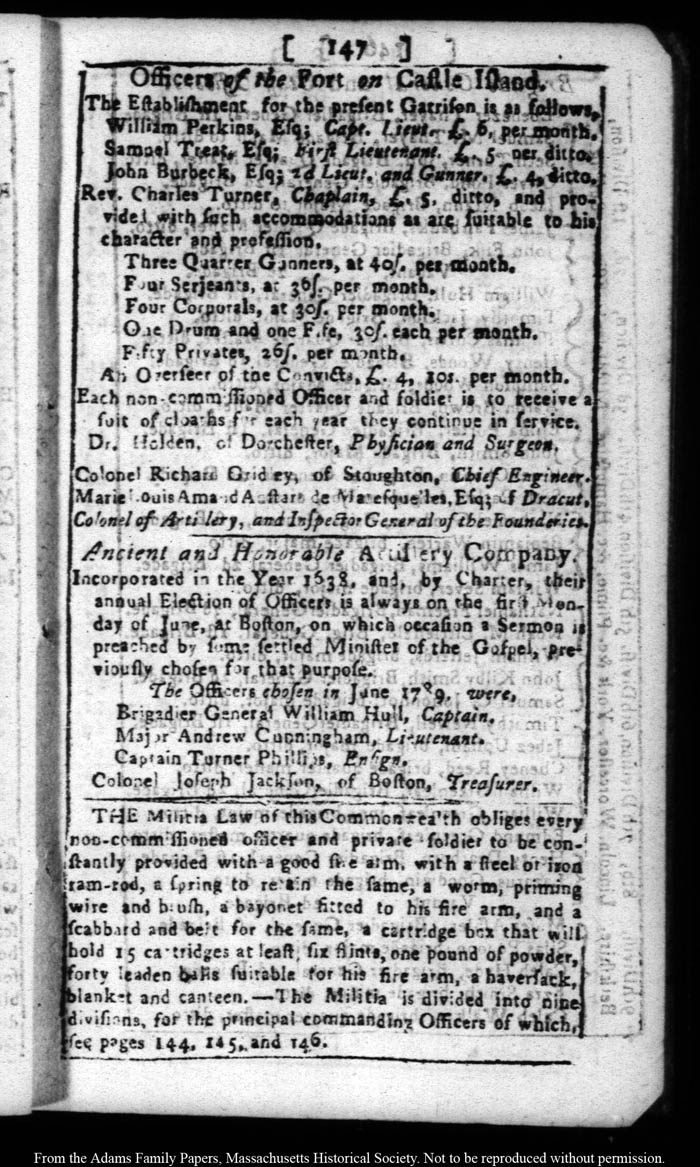 [ 147 ]
Officers of the Fort on Caſtle Iſland.
The Eſtabliſhment for the preſent Garriſon is as follows,
William Perkins, Eſq; Capt. Lieut. £. 6, per month.
Samuel Treat, Eſq; Firſt Lieutenant. £. 5 per ditto.
John Burbeck, Eſq; 2d Lieut. and Gunner. £. 4, ditto.
Rev. Charles Turner, Chaplain, £. 5. ditto, and pro-
vided with ſuch accommodations as are ſuitable to his
character and profeſſion.
Three Quarter Gunners, at 40ſ. per month.
Four Serjeants, at 36ſ. per month.
Four Corporals, at 30ſ. per month.
One Drum and one Fife, 30ſ. each per month.
Fifty Privates, 26ſ. per month.
An Overſeer of the Convicts, £. 4, 10s. per month.
Each non-commiſſioned Officer and ſoldier is to receive a
ſuit of cloaths for each year they continue in ſervice.
Dr. Holden, of Dorcheſter, Phyſician and Surgeon.
Colonel Richard Gridley, of Stoughton, Chief Engineer.
Marie Louis Amand Anſtart de Mareſquelles, Eſq; of Dracut,
Colonel of Artillery, and Inſpector General of the Founderies.
Ancient and Honorable Artillery Company.
Incorporated in the Year 1638, and, by Charter, their
annual Election of Officers is always on the firſt Mon-
day of June, at Boſton, on which occaſion a Sermon is
preached by ſome ſettled Miniſter of the Goſpel, pre-
viouſly choſen for that purpoſe.
The Officers choſen in June 1789, were,
Brigadier General William Hull, Captain.
Major Andrew Cunningham, Lieutenant.
Captain Turner Phillips, Enſign.
Colonel Joſeph Jackſon, of Boſton, Treaſurer.
THE Militia Law of this Commonwealth obliges every
non-commiſſioned officer and private ſoldier to be con-
ſtantly provided with a good fire arm, with a ſteel or iron
ram-rod, a ſpring to retain the ſame, a worm, priming
wire and bruſh, a bayonet fitted to his fire arm, and a
ſcabbard and belt for the ſame, a cartridge box that will
hold 15 cartridges at leaſt, ſix flints, one pound of powder,
forty leaden balls ſuitable for his fire arm, a haverſack,
blanket and canteen.—The Militia is divided into nine
diviſions, for the principal commanding Officers of which,
ſee pages 144, 145, and 146.
From the Adams Family Papers, Massachusetts Historical Society. Not to be reproduced without permission.